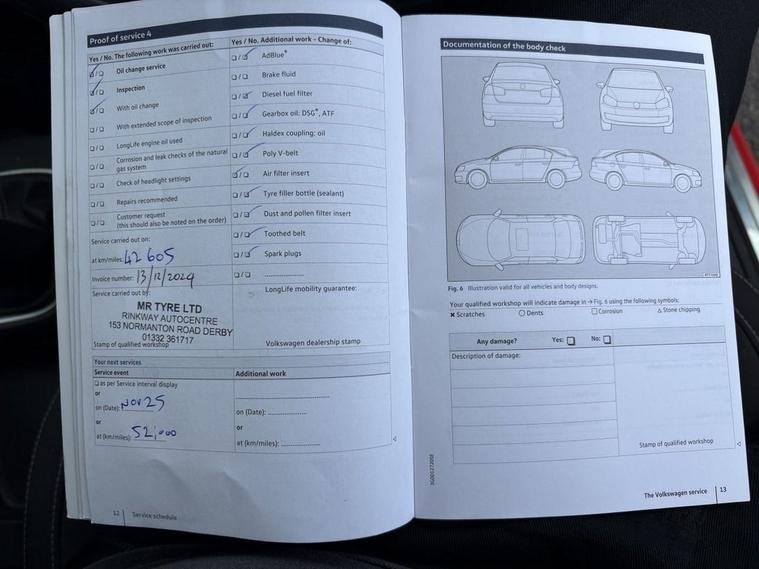 Proof of service 4
Yes / No. The following work was carried out:
Oil change service
Inspection
With oil change
With extended scope of inspection
LongLife engine oil used
Corrosion and leak checks of the natural
gas system
Check of headlight settings
Repairs recommended
Customer request
(this should also be noted on the order)
Service carried out on:
at km/miles: 42 605
Invoice number: 13/12/2024
Service carried out by:
MR TYRE LTD
RINKWAY AUTOCENTRE
153 NORMANTON ROAD DERBY
01332 361717
Stamp of qualified workshop
Yes / No. Additional work - Change of:
AdBlue®
Brake fluid
Diesel fuel filter
Gearbox oil: DSG®, ATF
Haldex coupling: oil
Poly V-belt
Air filter insert
Tyre filler bottle (sealant)
Dust and pollen filter insert
Toothed belt
Spark plugs
LongLife mobility guarantee:
Volkswagen dealership stamp
Your next services
Service event
as per Service interval display
or
on (Date): NOV 25
or
at (km/miles): 52,000
Additional work
on (Date):
or
at (km/miles):
12 Service schedule
Documentation of the body check
Fig. 6 Illustration valid for all vehicles and body designs.
Your qualified workshop will indicate damage in → Fig. 6 using the following symbols:
× Scratches ○ Dents □ Corrosion △ Stone chipping
Any damage? Yes: No:
Description of damage:
Stamp of qualified workshop
The Volkswagen service 13